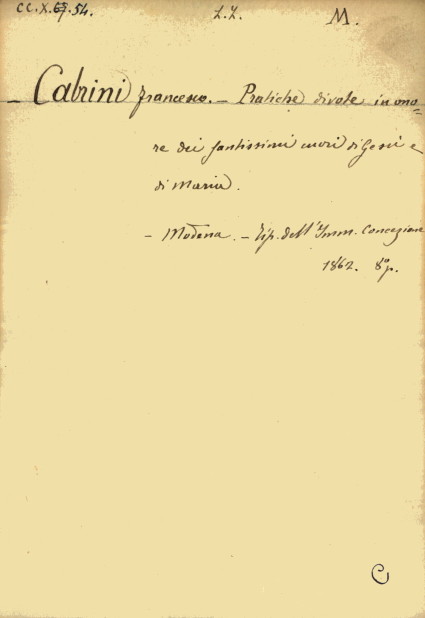 CC.X.69.54.
L.Z.
M.
- Cabrini Francesco. - Pratiche divote in ono=
re dei santissimi cuori di Gesù e
di Maria.
- Modena. - Tip. dell'Imm. Concezione
1862. 8° p.
C